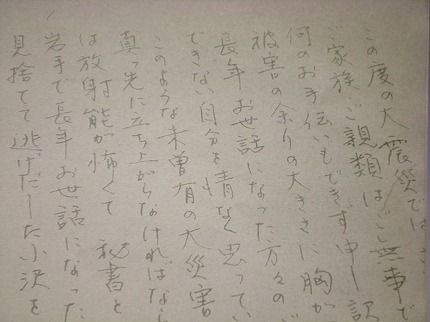 この度の大震災では
ご家族ご親類はご無事で
何のお手伝いもできず申し訳
被害の余りの大きさに胸が
長年お世話になった方々の
できない自分を情なく思ってい
このような未曽有の大災害
真っ先に立ち上がらなければなら
は放射能が怖くて 秘書と
岩手で長年お世話になった
見捨てて逃げだした小沢を